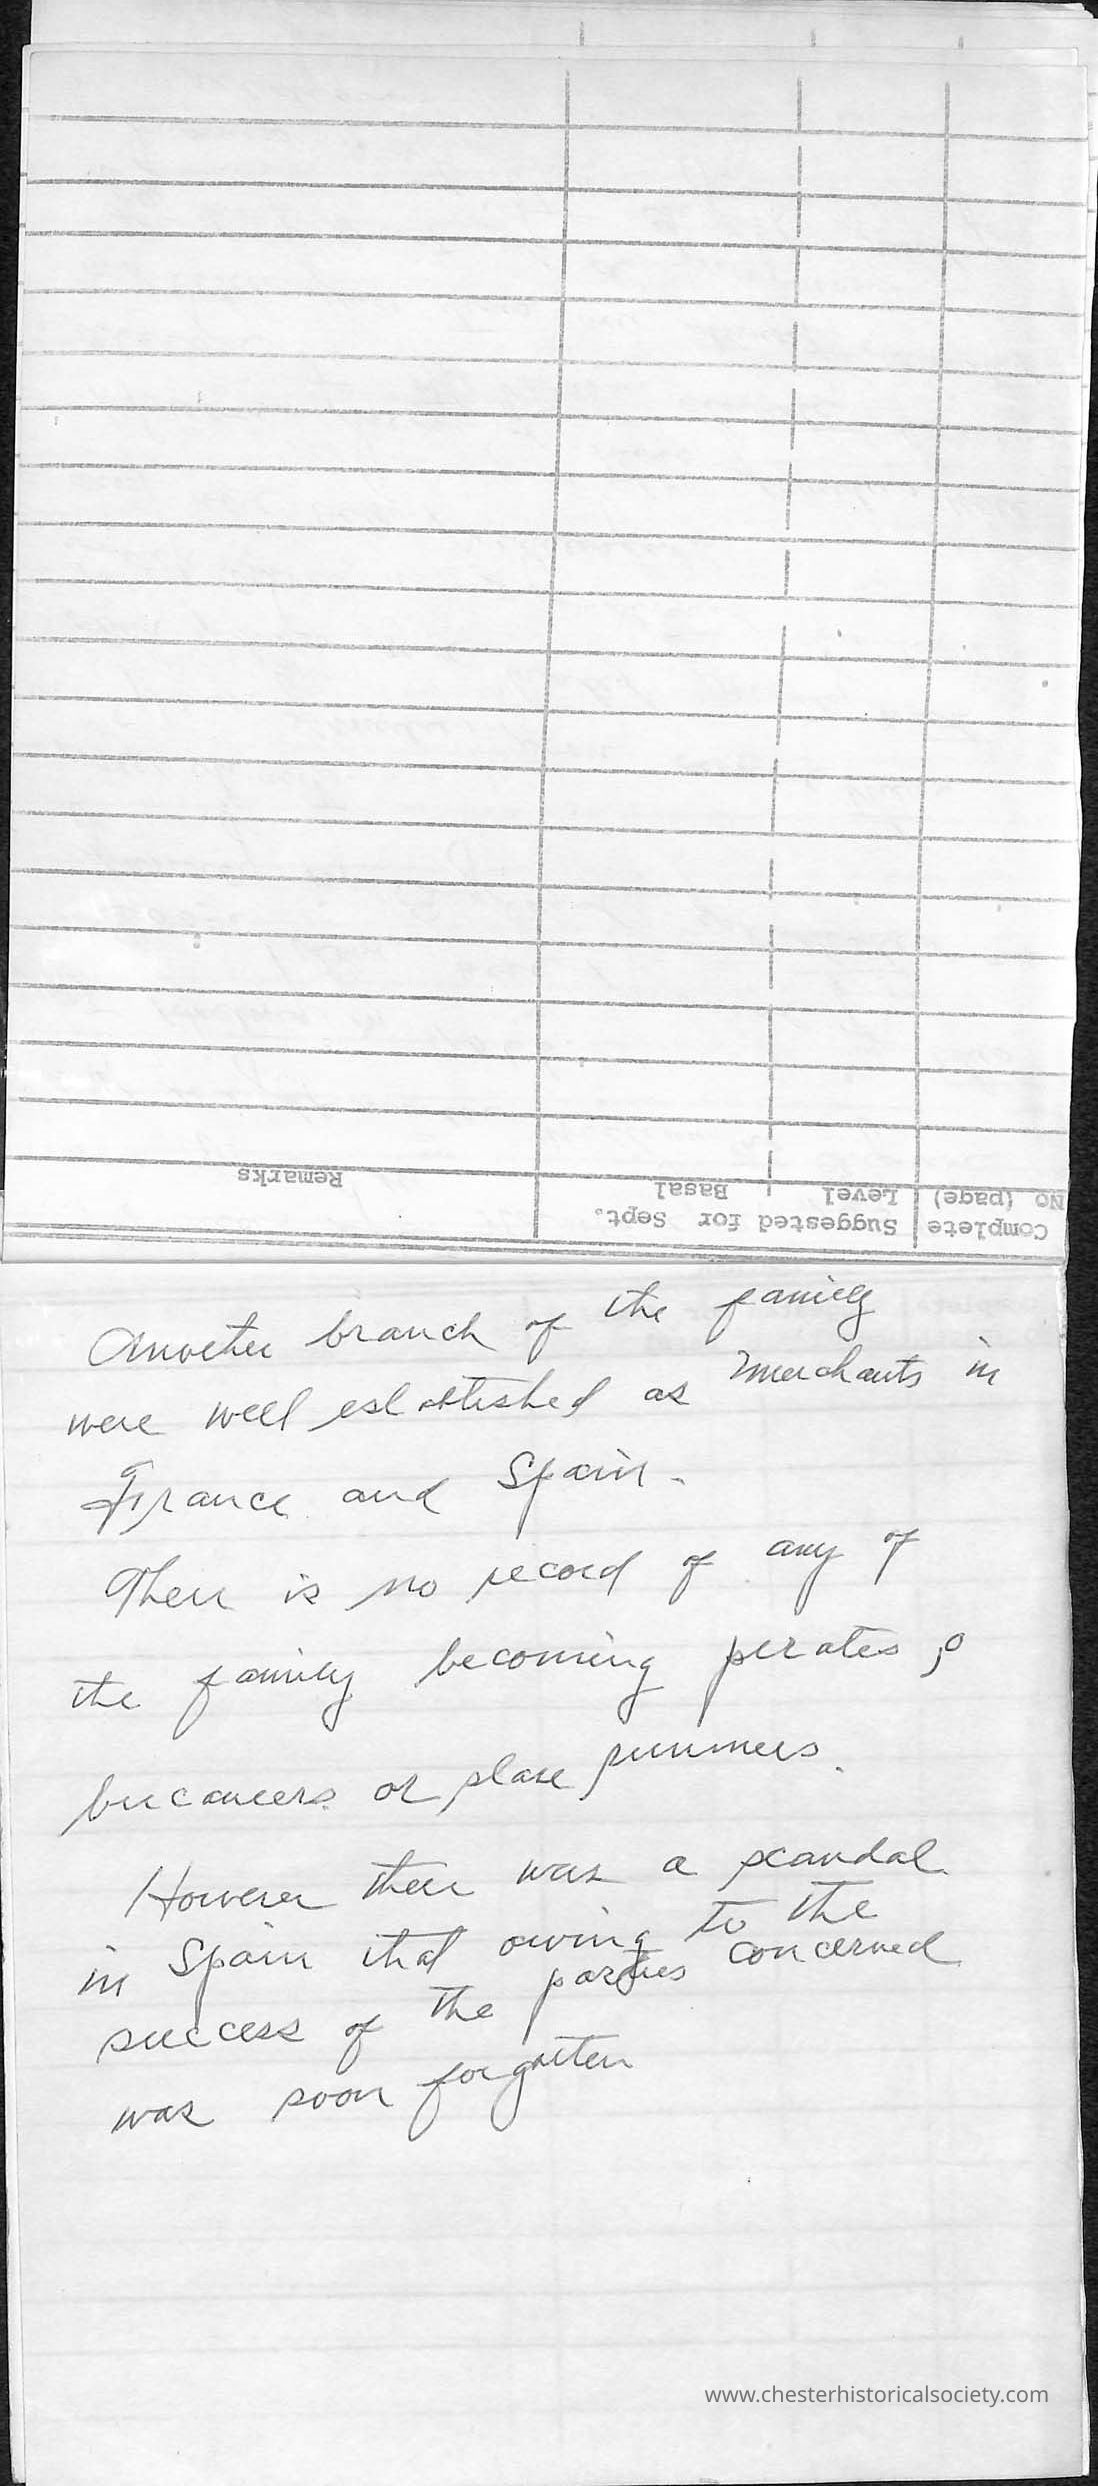 Remarks
Basal
Level
No (page)
Suggested for Sept.
Complete
Another branch of the family
were well established as merchants in
France and Spain.
There is no record of any of
the family becoming pirates,
bucaneers or slave runners.
However there was a scandal
in Spain that owing to the
success of the parties concerned
was soon forgotten
www.chesterhistoricalsociety.com